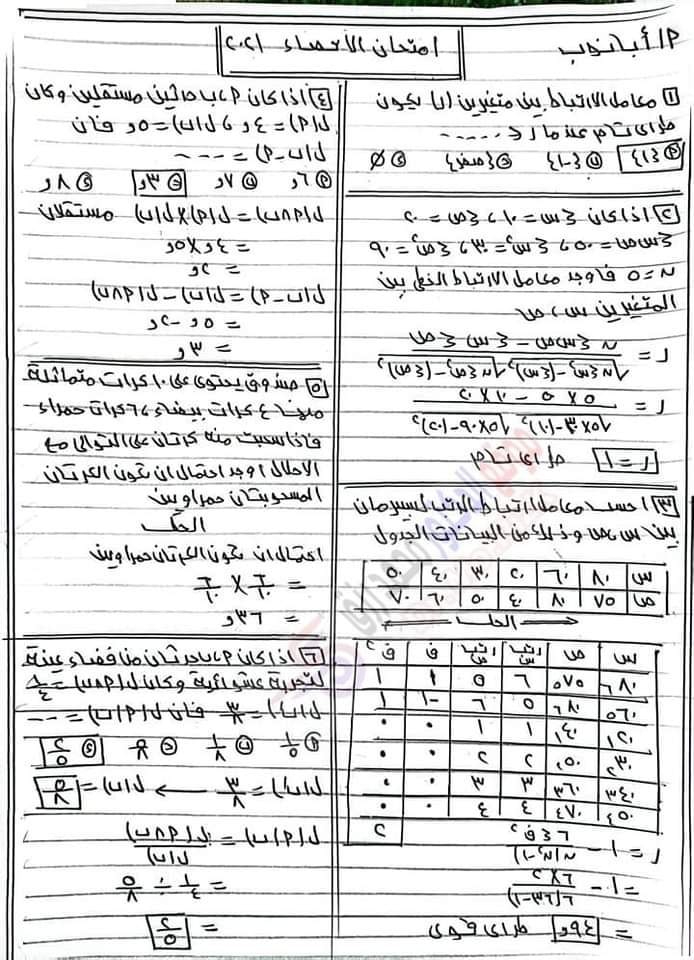 P/أبانوب
امتحان الأحصاء ٢٠٢١
١ معامل الارتباط بين متغيرين ا، ب يكون
طردى تام عندما ر = .....
P {١} ب {-١} ج {صفر} د Ø
٢ اذا كان ∑س = ١٠ ، ∑ص = ٢٠
∑س ص = ٥٠ ، ∑س² = ٣٠ ، ∑ص² = ٩٠
ن = ٥ فاوجد معامل الارتباط الخطى بين
المتغيرين س ، ص
ر = ن ∑س ص - ∑س ∑ص
√ن ∑س² - (∑س)² √ن ∑ص² - (∑ص)²
ر = ٥ × ٥٠ - ١٠ × ٢٠
√٥×٣٠ - (١٠)² √٥×٩٠ - (٢٠)²
ر = ١ طردى تام
٣ احسب معامل ارتباط الرتب لسبيرمان
بين س ، ص وذلك من البيانات الجدول
س ٨٠ ٦٠ ٢٠ ٣٠ ٤٠ ٥٠
ص ٧٥ ٨٠ ٤٠ ٥٠ ٦٠ ٧٠
الحل
س ص رتب س رتب ص ف ف²
٦ ٨٠ ٥ ٧٥ ٦ ٥ ١ ١
٥ ٦٠ ٦ ٨٠ ٥ ٦ -١ ١
١ ٢٠ ١ ٤٠ ١ ١ ٠ ٠
٢ ٣٠ ٢ ٥٠ ٢ ٢ ٠ ٠
٣ ٤٠ ٣ ٦٠ ٣ ٣ ٠ ٠
٤ ٥٠ ٤ ٧٠ ٤ ٤ ٠ ٠
٢
ر = ١ - ٦ ∑ف²
ن(ن² - ١)
= ١ - ٦ × ٢
٦(٣٦ - ١)
= ٩٤و طردى قوى
٤ اذا كان P ، ب حدثين مستقلين وكان
ل(P) = ٤و ، ل(ب) = ٥و فان
ل(ب - P) = ---
P ٦و ب ٧و ج ٣و د ٨و
ل(P∩ب) = ل(P) × ل(ب) مستقلان
= ٤و × ٥و
= ٢و
ل(ب - P) = ل(ب) - ل(P∩ب)
= ٥و - ٢و
= ٣و
٥ صندوق يحتوى على ١٠ كرات متماثلة
منها ٤ كرات بيضاء ، ٦ كرات حمراء
فاذا سحبت منه كرتان على التوالى مع
الاحلال اوجد احتمال ان تكون الكرتان
المسحوبتان حمراوين
الحل
احتمال ان تكون الكرتان حمراوين
= ٦/١٠ × ٦/١٠
= ٣٦و
٦ اذا كان P ، ب حدثان من فضاء عينة
لتجربة عشوائية وكان ل(P∩ب) = ١/٤
ل(ب') = ٣/٨ فان ل(P|ب) = ---
P ١/٥ ب ١/٨ ج ٥/٨ د ٢/٥
ل(ب') = ٣/٨ ← ل(ب) = ٥/٨
ل(P|ب) = ل(P∩ب)
ل(ب)
= ١/٤ ÷ ٥/٨
= ٢/٥